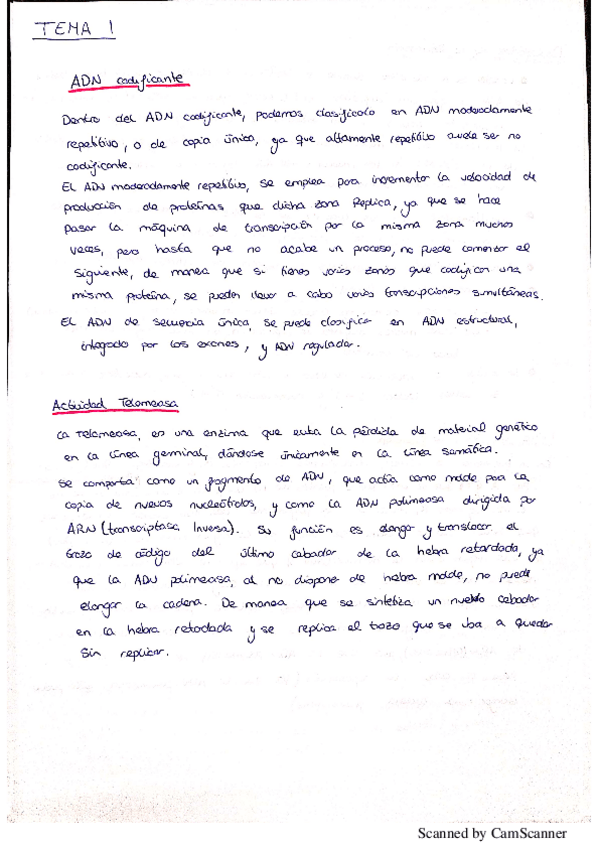 TEMA 1
ADN codificante
Dentro del ADN codificante, podemos clasificarlo en ADN moderadamente
repetitivo, o de copia única, ya que altamente repetitivo suele ser no
codificante.
El ADN moderadamente repetitivo, se emplea para incrementar la velocidad de
producción de proteínas que dicha zona replica, ya que se hace
pasar la máquina de transcripción por la misma zona muchas
veces, pero hasta que no acabe un proceso, no puede comenzar el
siguiente, de manera que si tienes varias zonas que codifican una
misma proteína, se pueden llevar a cabo varias transcripciones simultáneas.
El ADN de secuencia única, se puede clasificar en ADN estructural,
integrado por los exones, y ADN regulador.
Actividad Telomerasa
La telomerasa, es una enzima que evita la pérdida de material genético
en la línea germinal, dándose únicamente en la línea somática.
Se comporta como un fragmento de ADN, que actúa como molde para la
copia de nuevos nucleótidos, y como la ADN polimerasa dirigida por
ARN (transcriptasa Inversa). Su función es elongar y translocar el
trozo de código del último cebador de la hebra retardada, ya
que la ADN polimerasa, al no disponer de hebra molde, no puede
elongar la cadena. De manera que se sintetiza un nuevo cebador
en la hebra retardada y se replica el trozo que se iba a quedar
sin replicar.
Scanned by CamScanner